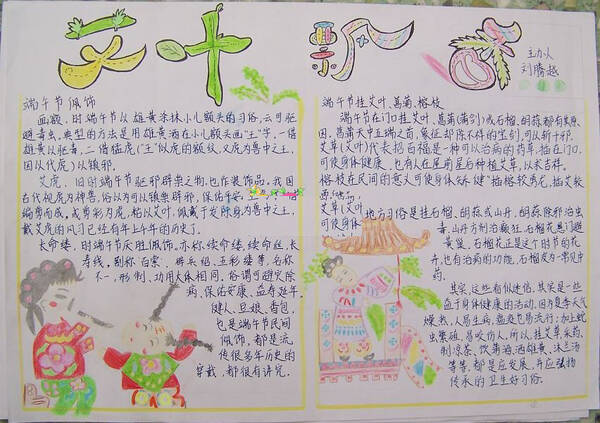 艾叶飘香
主办人
刘腾越
端午节佩饰
画额,时端午节以雄黄涂抹小儿额头的习俗,云可驱
避毒虫,典型的方法是用雄黄酒在小儿额头画"王"字,一借
雄黄以驱毒,二借猛虎("王"似虎的额纹,又虎为兽中之王,
因以代虎)以镇邪。
艾虎,旧时端午节驱邪辟祟之物,也作装饰品。我国
古代视虎为神兽,俗以为可以镇祟辟邪、保佑安
编剪而成,或剪彩为虎,粘以艾叶,佩戴于发际身
戴艾虎的风习已经有年上千年的历史了。
长命缕,时端午节厌胜佩饰。亦称续命缕、续命丝、长
寿线,别称百索、辟兵绍、五彩缕等,名称
不一,形制、功用大体相同。俗谓可避灾除
病、保佑安康、益寿延年。
健人、豆娘、香包,
也是端午节民间
佩饰,都是流
传很多年历史的
穿戴,都很有讲究。
端午节挂艾叶、菖蒲、榕枝
端午节在门口挂艾叶、菖蒲(蒲剑)或石榴、胡蒜都有其原
因。菖蒲天中五端之首,象征却除不祥的宝剑,可以斩千邪。
艾草(艾叶)代表招百福是一种可以治病的药草,插在门口,
可使身体健康,也有人在屋前屋后种植艾草,以求吉祥。
榕枝在民间的意义可使身体矫健"插榕较勇龙,插艾较
艾草(艾叶)
可使身体
地方习俗是挂石榴、胡蒜或山丹,胡蒜除邪治虫
毒,山丹方剂治癫狂。石榴花悬门避
黄巢。石榴花正是这个时节的花
卉,也有治病的功能,石榴皮为一常见中
药。
其实,这些看似迷信,其实是一些
益于身体健康的活动,因为夏季天气
燥热,人易生病,瘟疫也易流行;加上蛇
虫繁殖,易咬伤人,所以,挂艾草、采药、
制凉茶、饮蒲酒、洒雄黄、沐兰汤
等等,都是应发展,并应弘扬
传承的卫生好习俗。